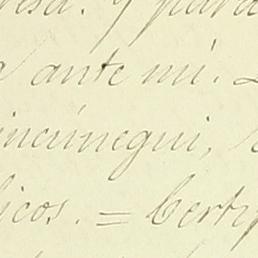 esa. y para
a ante mí.
incúnegui,
licos. = Certif